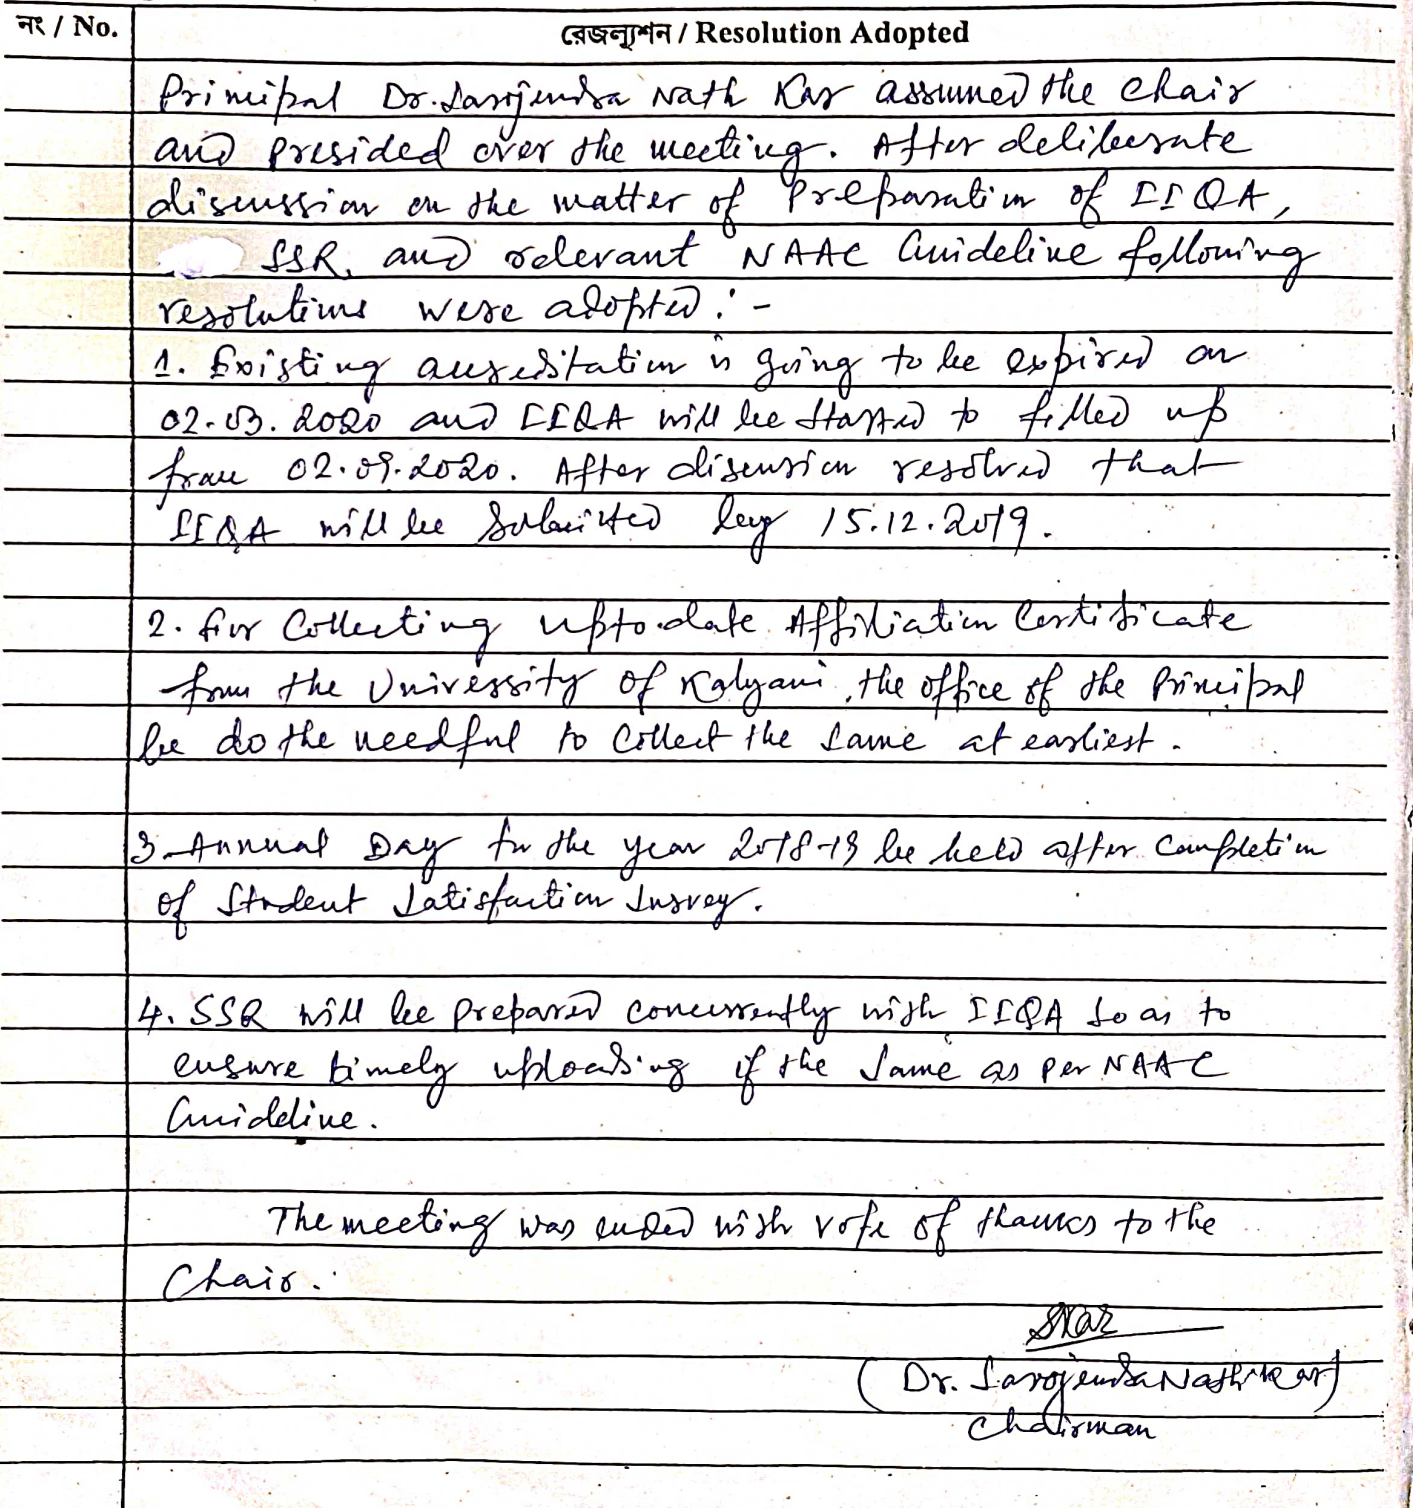 নং / No.
রেজল্যুশন / Resolution Adopted
Principal Dr. Sarojendra Nath Kar assumed the chair
and presided over the meeting. After deliberate
discussion on the matter of Preparation of IIQA,
SSR, and relevant NAAC Guideline following
resolutions were adopted : -
1. Existing accreditation is going to be expired on
02.03.2020 and IIQA will be started to filled up
from 02.09.2020. After discussion resolved that
IIQA will be Submitted by 15.12.2019.
2. For Collecting upto-date Affiliation Certificate
from the University of Kalyani, the office of the Principal
be do the needful to Collect the same at earliest.
3. Annual Day for the year 2018-19 be held after Completion
of Student Satisfaction Survey.
4. SSR will be prepared concurrently with IIQA so as to
ensure timely uploading if the same as per NAAC
Guideline.
The meeting was ended with vote of thanks to the
Chair.
SKar
( Dr. Sarojendra Nath Kar )
Chairman